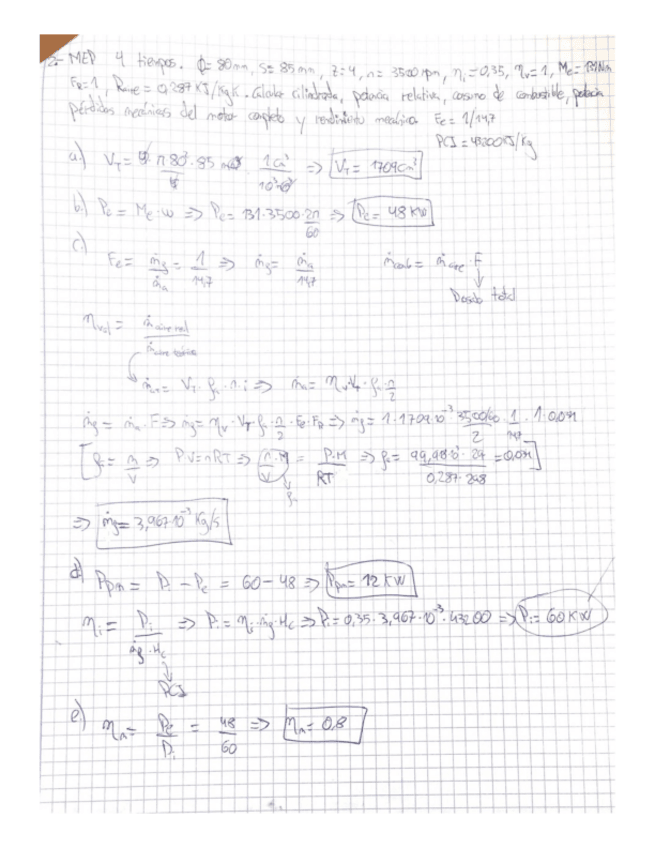 2.- MEP 4 tiempos. Φ= 80mm, S= 85mm, z=4, n= 3500 rpm, ηi=0,35, ηv=1, Me=131Nm
FR=1, Raire=0,287 KJ/KgK. Calcular cilindrada, potencia relativa, consumo de combustible, potencia
pérdidas mecánicas del motor completo y rendimiento mecánico Fe= 1/14,7
PCI= 43200KJ/Kg
a.) VT= 4·π80²·85 / 4 · 1cm³ / 10³ => VT= 1709cm³
b.) Pe= Me·ω => Pe= 131·3500·2π/60 => Pe= 48 KW
c.) Fe= ṁf/ṁa = 1/14,7 => ṁf= ṁa/14,7 ṁcomb= ṁaire·F
Dosado total
ηvol= ṁaire real / ṁaire teórico
VT·ρa·n·i => ṁa= ηv·VT·ρa·n/2
ṁf= ṁa·F => ṁf= ηv·VT·ρa·n/2·Fe·FR => ṁf= 1·1709·10⁻³ 3500/60/2 · 1/14,7 · 1·
[ρ= m/V => PV=nRT => n·M/V = P·M/RT => ρa= / 0,287·298 ]
ρa
=> ṁf= 3,967·10⁻³ Kg/s
d) Ppm= Pi - Pe = 60-48 => Ppm= 12 KW
ηi= Pi / ṁf·Hc => Pi= ηi·ṁf·Hc => Pi= 0,35·3,967·10⁻³·43200 => Pi= 60KW
PCI
e.) ηm= Pe/Pi = 48/60 => ηm= 0,8